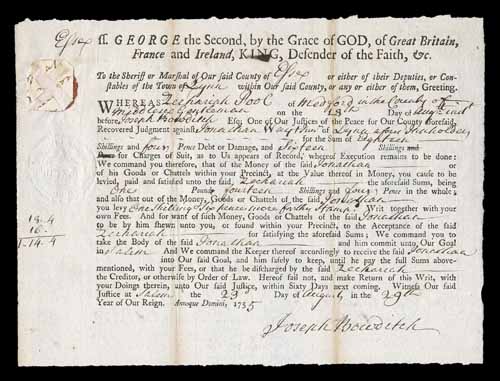 Essex ss. GEORGE the Second, by the Grace of GOD, of Great Britain,
France and Ireland, KING, Defender of the Faith, &c.
To the Sheriff or Marshal of Our said County of Essex or either of their Deputies, or Con-
stables of the Town of Lynn within Our said County, or any or either of them, Greeting.
WHEREAS Zechariah Pool of Medford in the County of
Middlesex Gentleman on the 19th Day of August
before Joseph Bowditch Esq; One of Our Justices of the Peace for Our County aforesaid,
Recovered Judgment against Jonathan of Lynn aforesd Inholder
for the Sum of Eighteen
Shillings and four Pence Debt or Damage, and Sixteen
for Charges of Suit, as to Us appears of Record, whereof Execution remains to be done:
We command you therefore, that of the Money of the said Jonathan
or of his Goods or Chattels within your Precinct, at the Value thereof in Money, you cause to be
levied, paid and satisfied unto the said Zechariah the aforesaid Sums, being
One Pound fourteen Shillings and four Pence in the whole;
and also that out of the Money, Goods or Chattels of the said Jonathan
you levy One Shilling & Sixpence more for the Writ together with your
own Fees. And for want of such Money, Goods or Chattels of the said Jonathan
to be by him shewn unto you, or found within your Precinct, to the Acceptance of the said
Zechariah for satisfying the aforesaid Sums; We command you to
take the Body of the said Jonathan and him commit unto Our Goal
in Salem And We command the Keeper thereof accordingly to receive the said Jonathan
into Our said Goal, and him safely to keep, until he pay the full Sums above-
mentioned, with your Fees, or that he be discharged by the said Zechariah
the Creditor, or otherwise by Order of Law. Hereof fail not, and make Return of this Writ, with
your Doings therein, unto Our said Justice, within Sixty Days next coming. Witness Our said
Justice at Salem the 23 Day of August in the 29th
Year of Our Reign. Annoque Domini, 1755
Joseph Bowditch
18. 4
16.
1. 14. 4